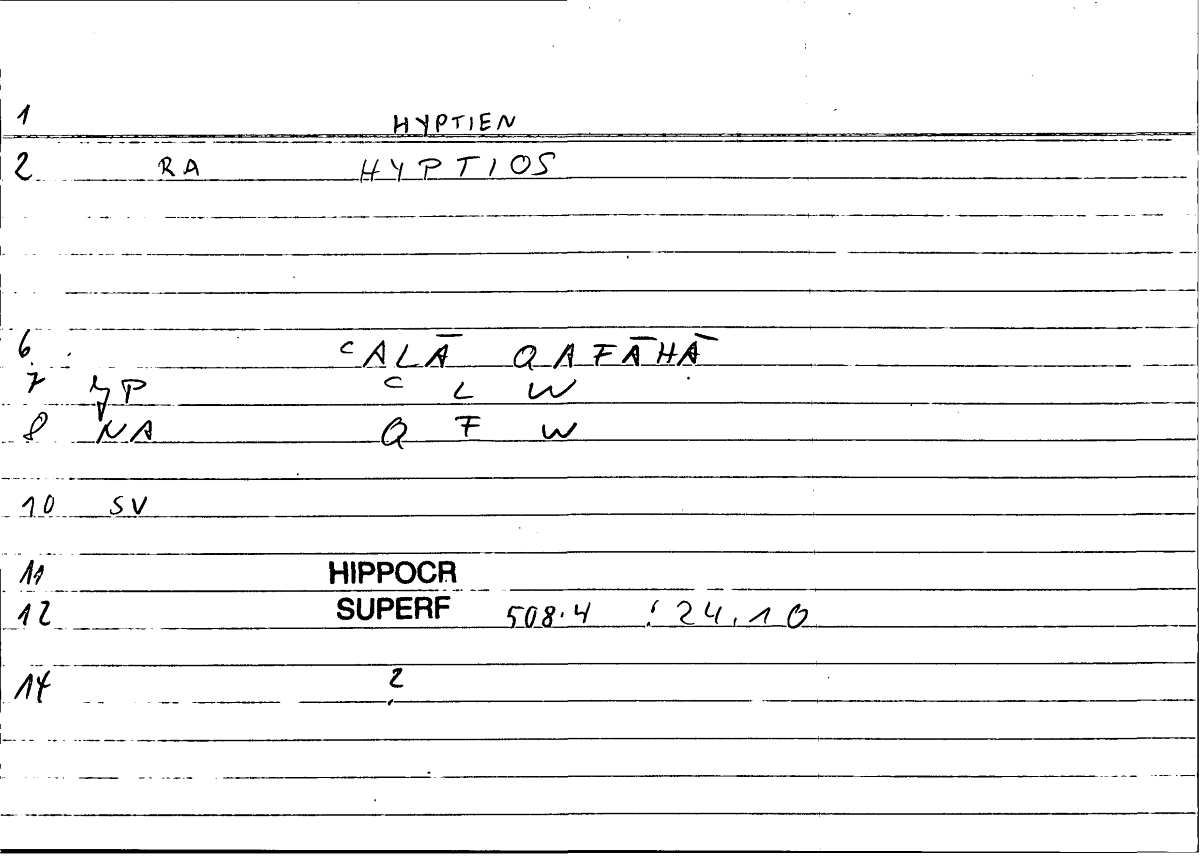 1 HYPTIEN
2 RA HYPTIOS
6 ᶜALĀ QAFĀHĀ
7 ᶜ L W
8 NA Q F W
10 SV
11 HIPPOCR
12 SUPERF 508.4 : 24.10
14 2